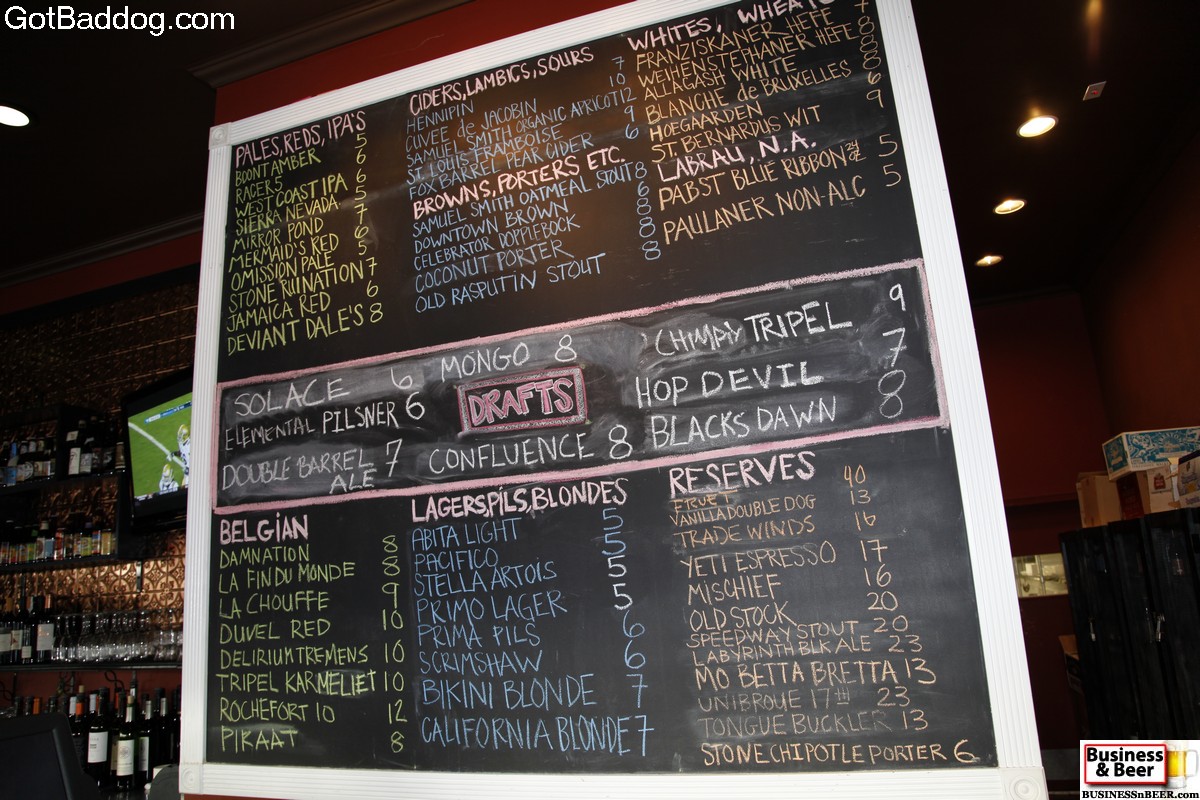 GotBaddog.com
PALES, REDS, IPA'S
BOONT AMBER 5
RACER 5 6
WEST COAST IPA 6
SIERRA NEVADA 5
MIRROR POND 7
MERMAID'S RED 6
OMISSION PALE 5
STONE RUINATION 7
JAMAICA RED 6
DEVIANT DALE'S 8
CIDERS, LAMBICS, SOURS
HENNIPIN 7
CUVEE de JACOBIN 10
SAMUEL SMITH ORGANIC APRICOT 12
ST. LOUIS FRAMBOISE 9
FOX BARREL PEAR CIDER 6
BROWNS, PORTERS ETC.
SAMUEL SMITH OATMEAL STOUT 8
DOWNTOWN BROWN 6
CELEBRATOR DOPPLEBOCK 8
COCONUT PORTER 8
OLD RASPUTIN STOUT 8
WHITES, WHEATS
FRANZISKANER HEFE 7
WEIHENSTEPHANER HEFE 8
ALLAGASH WHITE 8
BLANCHE de BRUXELLES 8
HOEGAARDEN 6
ST. BERNARDUS WIT 9
LABRAU, N.A.
PABST BLUE RIBBON 24 OZ 5
PAULANER NON-ALC 5
SOLACE 6
ELEMENTAL PILSNER 6
DOUBLE BARREL ALE 7
MONGO 8
DRAFTS
CONFLUENCE 8
CHIMPIY TRIPEL 9
HOP DEVIL 7
BLACKS DAWN 8
BELGIAN
DAMNATION 8
LA FIN DU MONDE 8
LA CHOUFFE 9
DUVEL RED 10
DELIRIUM TREMENS 10
TRIPEL KARMELIET 10
ROCHEFORT 10 12
PIKAAT 8
LAGERS, PILS, BLONDES
ABITA LIGHT 5
PACIFICO 5
STELLA ARTOIS 5
PRIMO LAGER 5
PRIMA PILS 6
SCRIMSHAW 6
BIKINI BLONDE 7
CALIFORNIA BLONDE 7
RESERVES
FRUET 40
VANILLA DOUBLE DOG 13
TRADE WINDS 16
YETI ESPRESSO 17
MISCHIEF 16
OLD STOCK 20
SPEEDWAY STOUT 20
LABYRINTH BLK ALE 23
MO BETTA BRETTA 13
UNIBROUE 17TH 23
TONGUE BUCKLER 13
STONE CHIPOTLE PORTER 6
Business
& Beer
BUSINESSnBEER.com